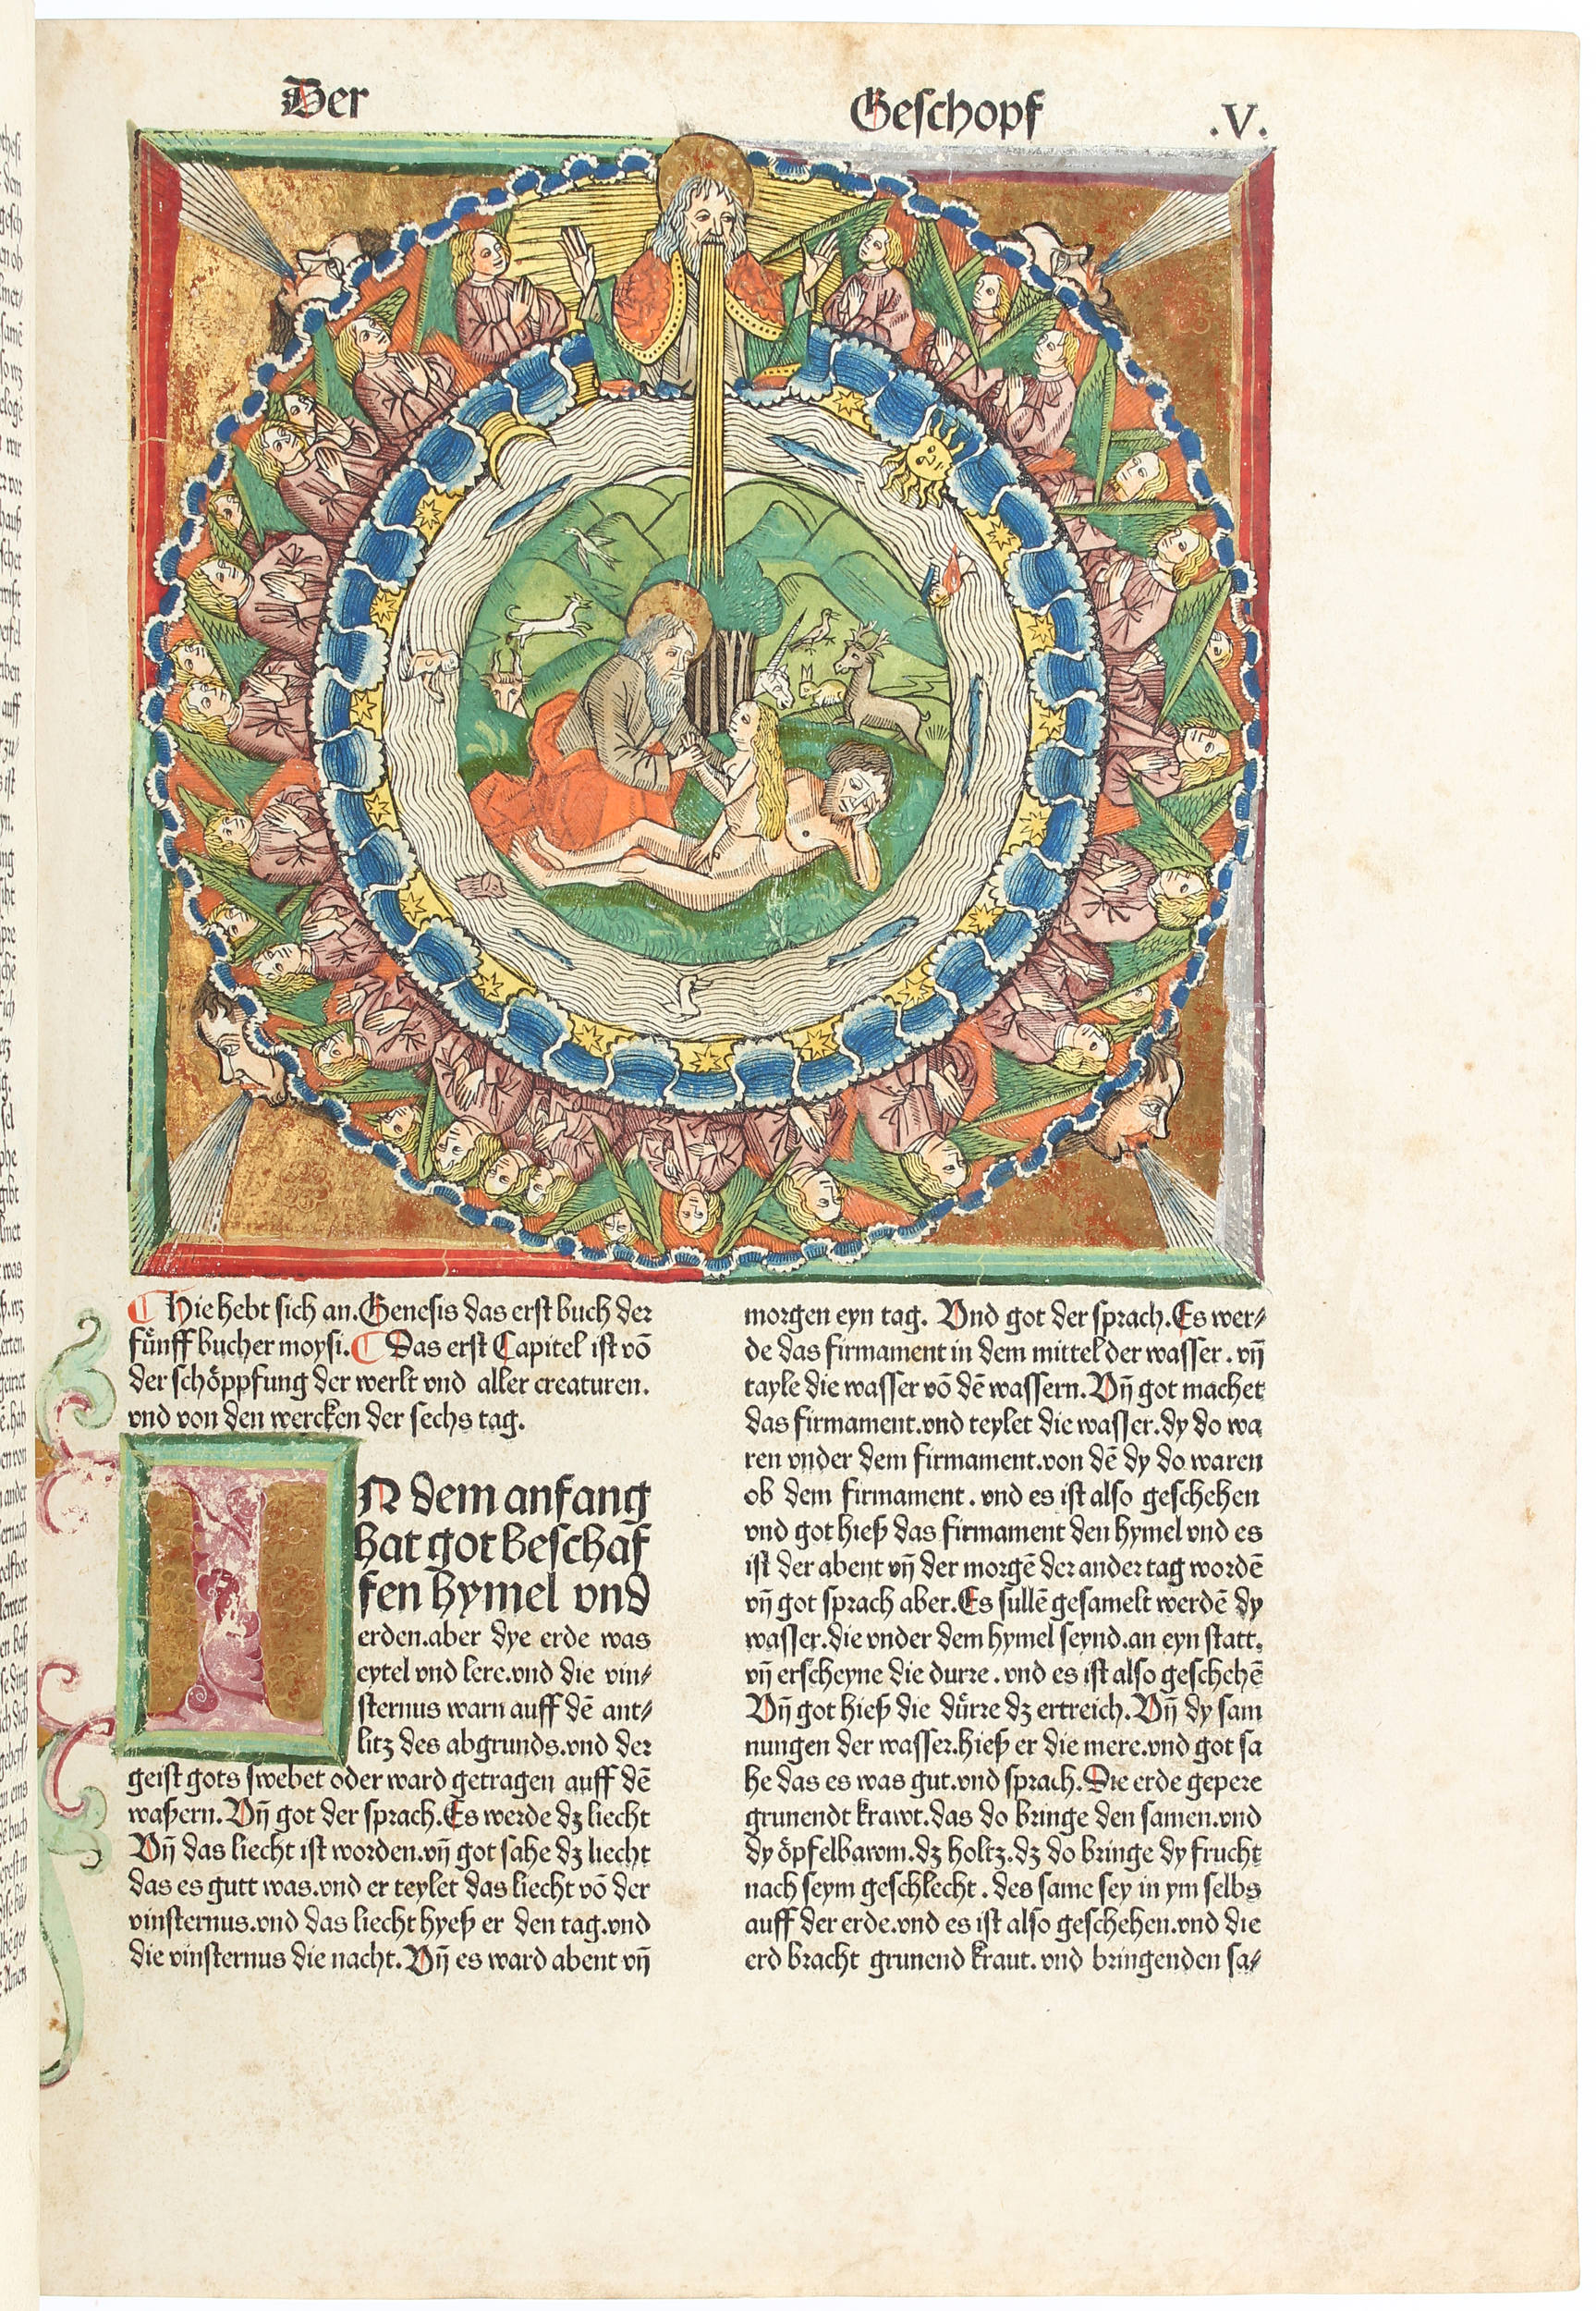 Der Geschopf .V.
Hie hebt sich an.Genesis das erst buch der
fünff bucher moysi. Das erst Capitel ist võ
der schöppfung der werlt vnd aller creaturen.
vnd von den wercken der sechs tag.
IN dem anfang
hat got beschaf
fen hymel vnd
erden.aber dye erde was
eytel vnd lere.vnd die vin⸗
sternus warn auff dẽ ant⸗
litz des abgrunds.vnd der
geist gots swebet oder ward getragen auff dẽ
waßern. Vñ got der sprach.Es werde dz liecht
Vñ das liecht ist worden.vñ got sahe dz liecht
das es gutt was.vnd er teylet das liecht võ der
vinsternus.vnd das liecht hyeß er den tag.vnd
die vinsternus die nacht. Vñ es ward abent vñ
morgen eyn tag. Vnd got der sprach.Es wer⸗
de das firmament in dem mittel der wasser. vñ
tayle die wasser võ dẽ wassern. Vñ got machet
das firmament.vnd teylet die wasser.dy do wa
ren vnder dem firmament.von dẽ dy do waren
ob dem firmament. vnd es ist also geschehen
vnd got hieß das firmament den hymel vnd es
ist der abent vñ der morgẽ der ander tag wordẽ
vñ got sprach aber.Es sullẽ gesamelt werdẽ dy
wasser.die vnder dem hymel seynd.an eyn statt.
vñ erscheyne die durre. vnd es ist also geschehẽ
Vñ got hieß die dürre dz ertreich. Vñ dy sam
nungen der wasser.hieß er die mere.vnd got sa
he das es was gut.vnd sprach.Die erde gepere
grunendt krawt.das do bringe den samen.vnd
dy öpfelbawm.dz holtz.dz do bringe dy frucht
nach seym geschlecht. des same sey in ym selbs
auff der erde.vnd es ist also geschehen.vnd die
erd bracht grunend kraut. vnd bringenden sa⸗